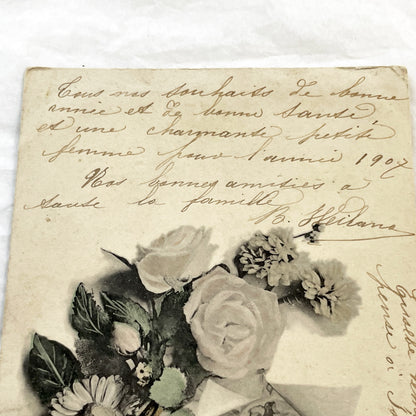 Tous nos souhaits de bonne
année et de bonne santé
et une charmante petite
femme pour l'année 1907
Nos bonnes amitiés à
toute la famille
pense à